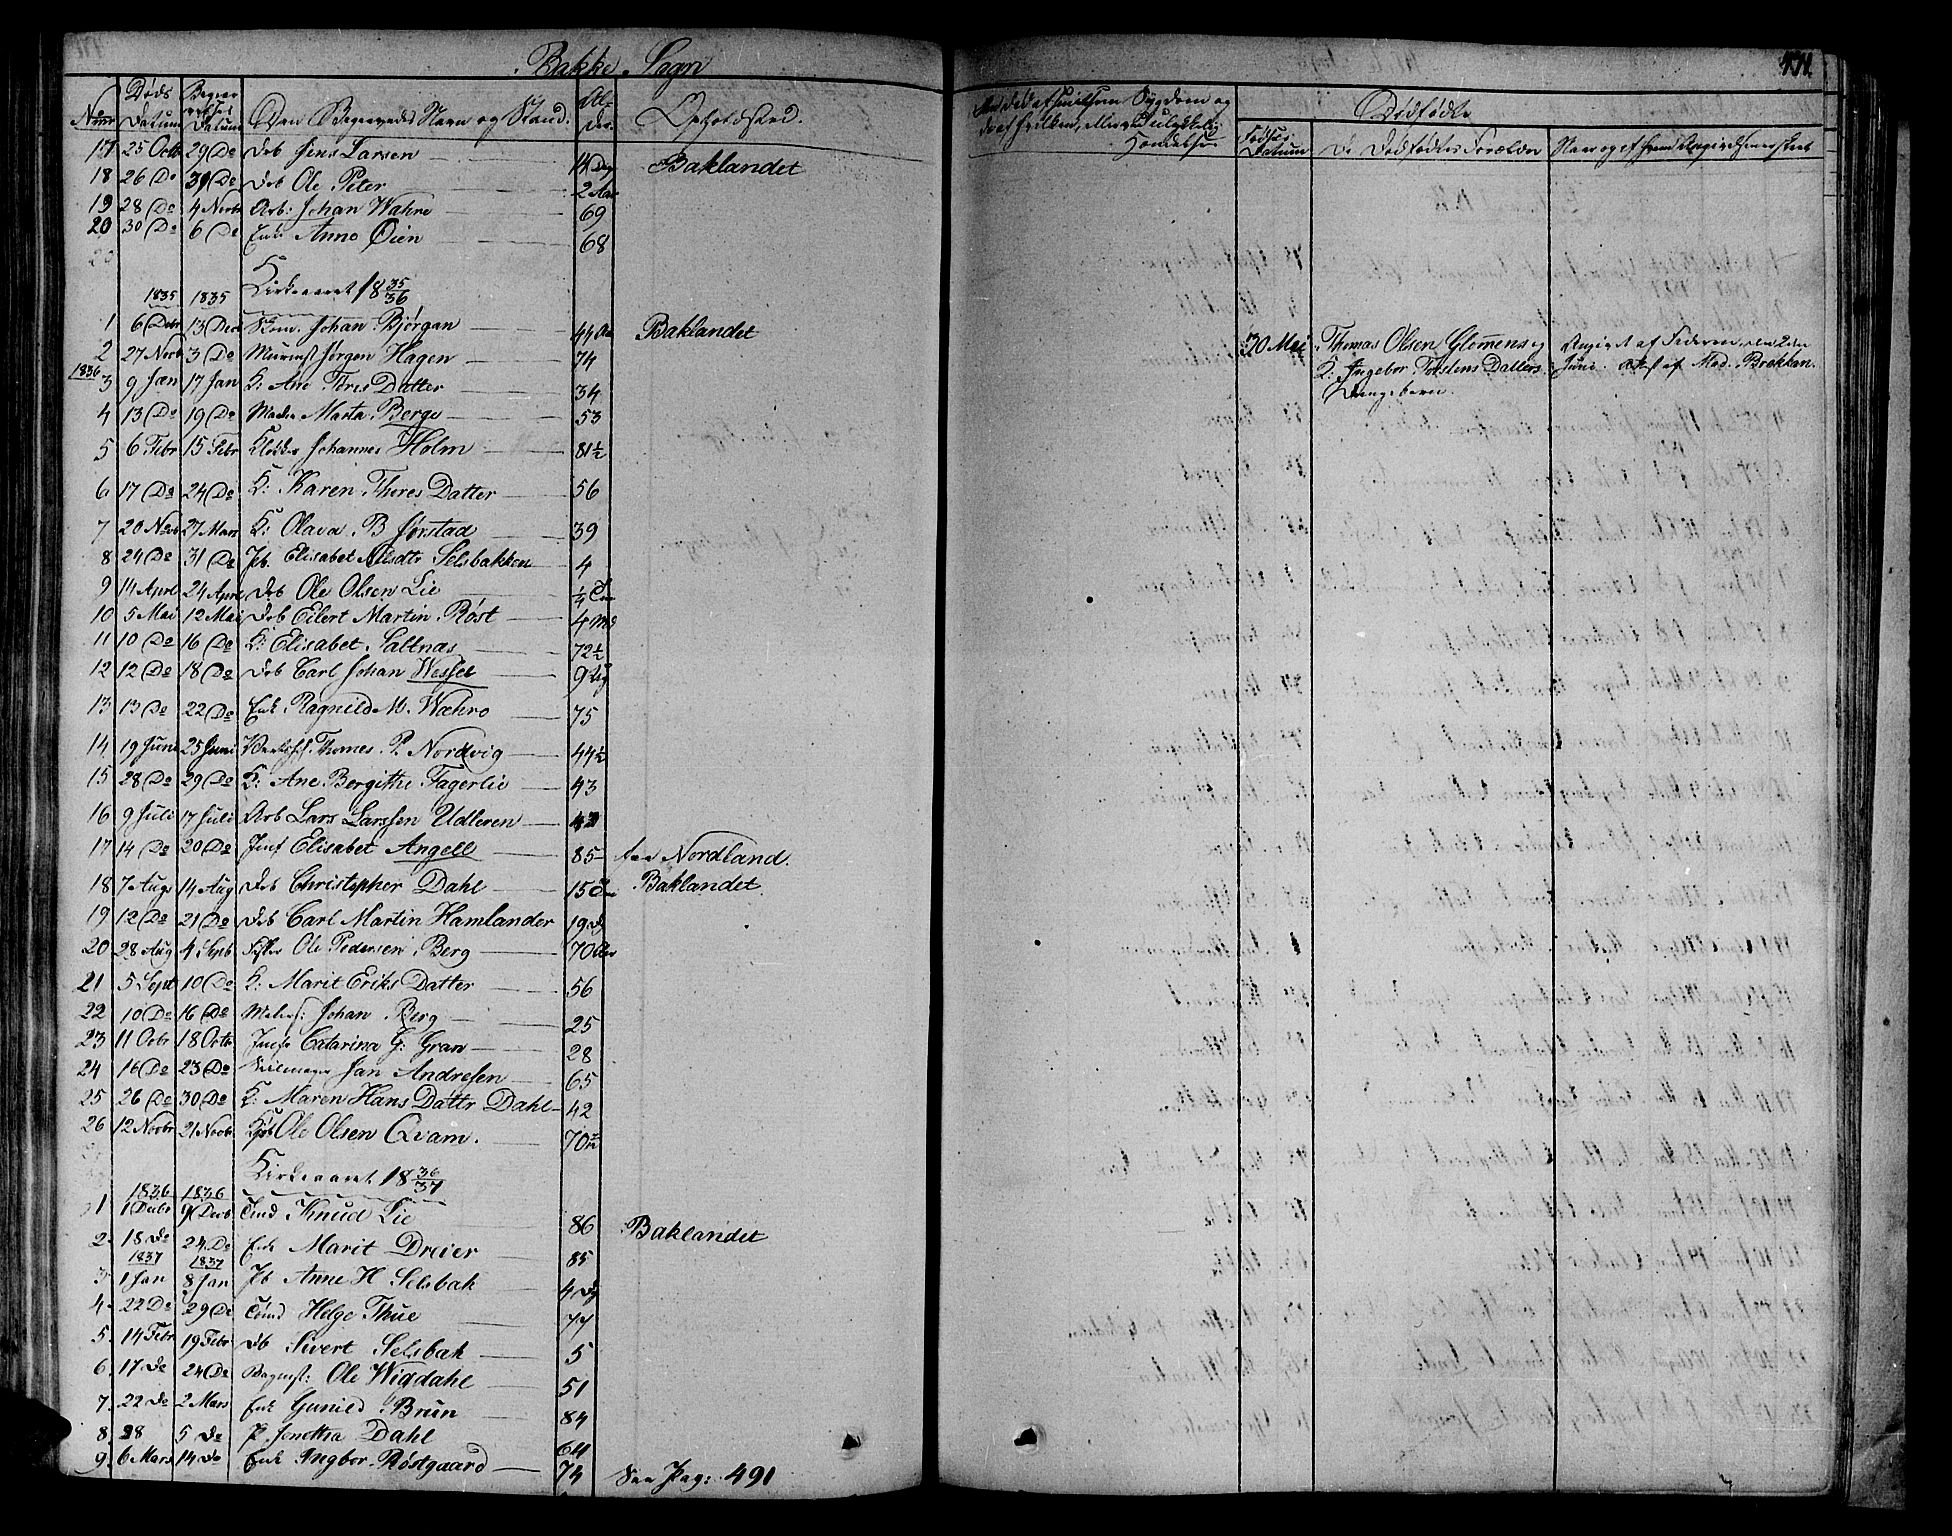 Bakke Sogn
Døds Datum Datum Den Begravedes Navn og Stand. Alder Opholdsted.
17 25 Octb 29 Do Drb Jens Larsen 14 Dag Baklandet
18 26 Do 30 Do Drb Ole Peter 2 Aar
19 28 Do 4 Novbr Arb: Johan Wahre 69
20 30 Do 6 Do Enk Anne Øien 68
1835 1835 Kirkeaaret 18 35/36
1 6 Debr 13 Dec Johan Bjørgan 44 Aar Baklandet
2 27 Novb 3 Do Murmst Jørgen Hagen 74
1836
3 9 Jan 17 Jan K: Ane Toris Datter 34
4 13 Do 19 Do Marta Berge 53
5 6 Febr 15 Febr Klokker Johannes Holm 81½
6 17 Do 24 Do K: Karen Thores Datter 56
7 20 27 Mars K: Olava B Jørstad 39
8 24 Do 31 Do Pb. Elisabet Nilsdtr Selsbakken 4
9 14 Aprl 24 Aprl Drb Ole Olsen Lie
10 5 Mai 12 Mai Drb Eilert Martin Røst 4
11 10 Do 16 Do K: Elisabet Saltnæs 72½
12 12 Do 18 Do Drb Carl Johan Wessel 9
13 13 Do 22 Do Enk Ragnild M. Wæhre 75
14 19 Juni 25 Juni Thomes P. Nordvig 44½
15 28 Do 29 Do K: Ane Bergitthe Fagerlie 43
16 9 Juli 17 Juli Arb Lars Larssen Udleren
17 14 Do 20 Do Jmf Elisabet Angell 85 Nordland.
18 7 Aug 14 Aug Drb Christopher Dahl 15 Baklandet
19 12 Do 21 Do Drb Carl Martin Hamlander 19 D
20 28 Aug 4 Sepb Ole Pedersen Berg 70 Aar
21 5 Sept 10 Do K: Marit Eriks Datter 56
22 10 Do 16 Do Johan Berg 25
23 11 Octr 18 Octr Jmfr Catarina G: Gran 28
24 16 Do 23 Do Seilmager Jan Andresen 65
25 26 Do 30 Do K: Maren Hans Dattr Dahl 42
26 12 Novbr 21 Novb. Ole Olsen Qvam. 70
Kirkeaaret 18 36/37
1836 1836
1 1 Debr 9 Decb Knud Lie 86 Baklandet
2. 18 Do 24 Do Enk Marit Dreier 85
1837 1837
3 1 Jan 8 Jan Pb Anne H Selsbak 4 Dg
4. 22 Do 29 Do Helge Thue 77
5. 14 Febr 19 Febr Db Sivert Selsbak 5
6. 17 Do 24 Do Ole Wigdahl 51
7. 22 Do 2 Mars Enk Gunild Brun 84
8. 28 5 Do P. Dahl 64
9. 6 Mars 14 Do Enk Ingbor Røstgaard 74 See Pag: 491
Dødfødte
Fødsels Datum De Dødfødtes Forældre
30 Mai Thomas Olsen Glemens og Angivet af Faderen, den 2den
K: Ingebor Torstens Datters Juni. af Mad. Brekkan.
Drengebarn.